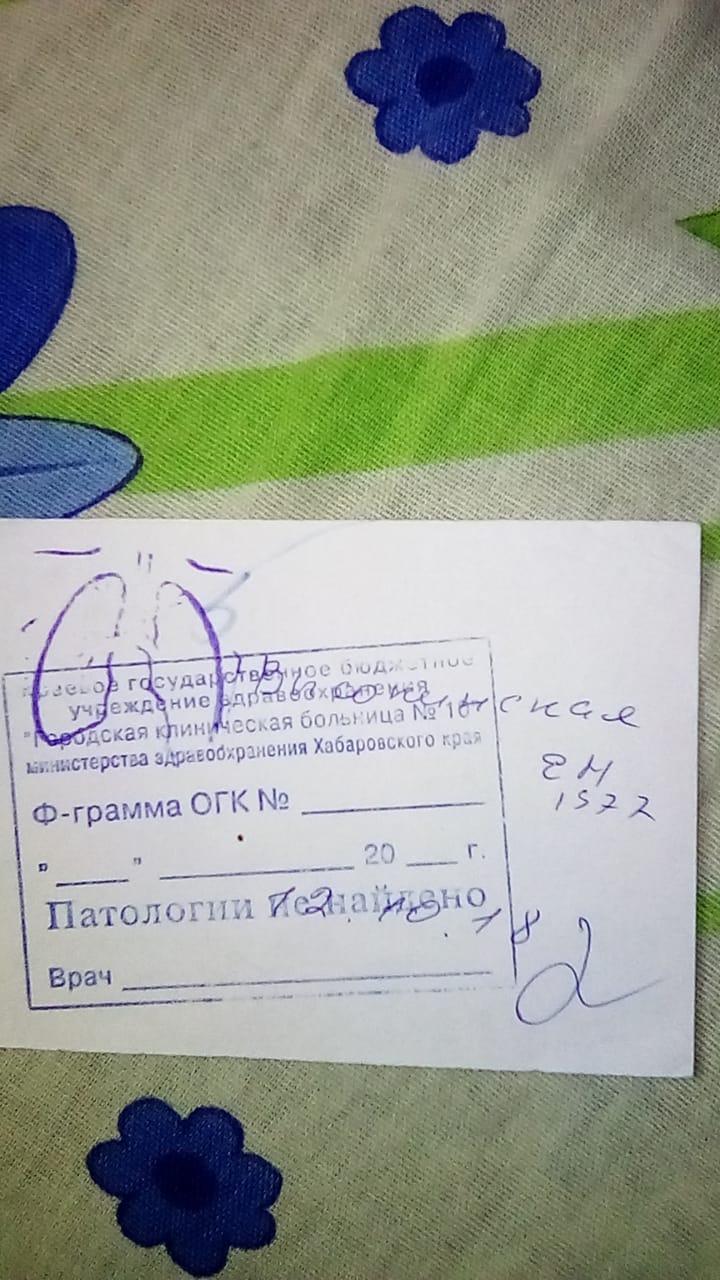 Краевое государственное бюджетное
учреждение здравоохранения
"Городская клиническая больница № 10"
министерства здравоохранения Хабаровского края
Ф-грамма ОГК №
" " 20 г.
Патологии не найдено
12.10.18
Врач